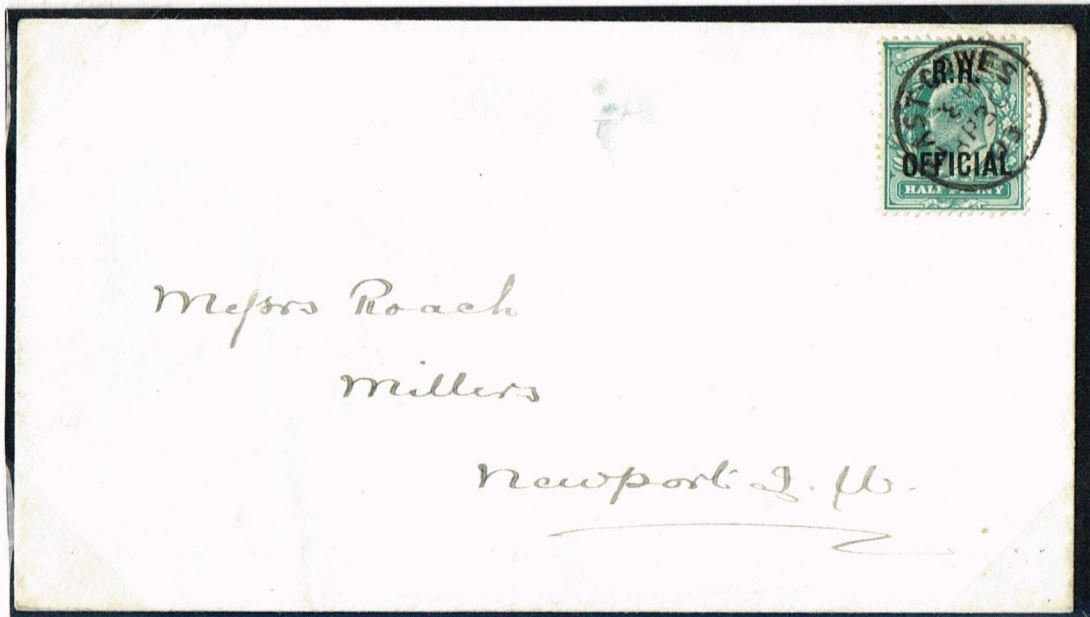 R.H.
EAST COWES
OFFICIAL
HALFPENNY
Messrs Roach
Millers
Newport I. W.